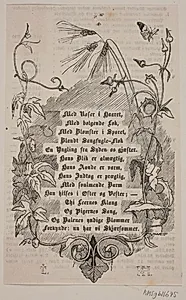 Med Roser i Haaret,
Med bølgende Lok,
Med Blomster i Sporet,
Blandt Sangfugle-Flok
En Yngling fra Syden os gjæster.
Hans Blik er almægtig,
Hans Aande er varm,
Hans Indtog er prægtig,
Med svulmende Barm
Han hilses i Øster og Vester; —
Thi Lærens Klang
Og Pigernes Sang,
Og Palmer undige Blommer
Forkynde: nu har vi Skjærsommer.